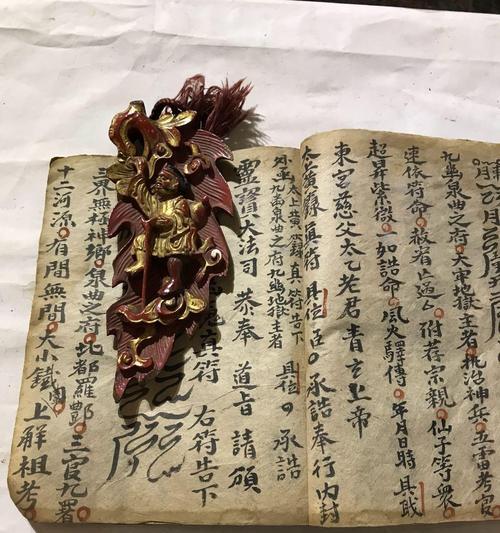 九幽泉曲之府大軍地獄主者 神兵五雷考官
速依符命 附荐宗親仙子等眾
超昇紫微一如誥命風火驛傳年月日時具
東宮慈父太乙老君青玄上帝
太 黃籙真符具位臣 承誥奉行內封
太上黃籙真符告下
外 九幽泉曲之府九幽地獄主者 具位 承誥
靈寶大法司恭奉道旨請頒
真符 右符告下
三界無極神鄉泉曲之府北都羅酆三官九署
十二河源有間無間大小鐵圍上解祖考